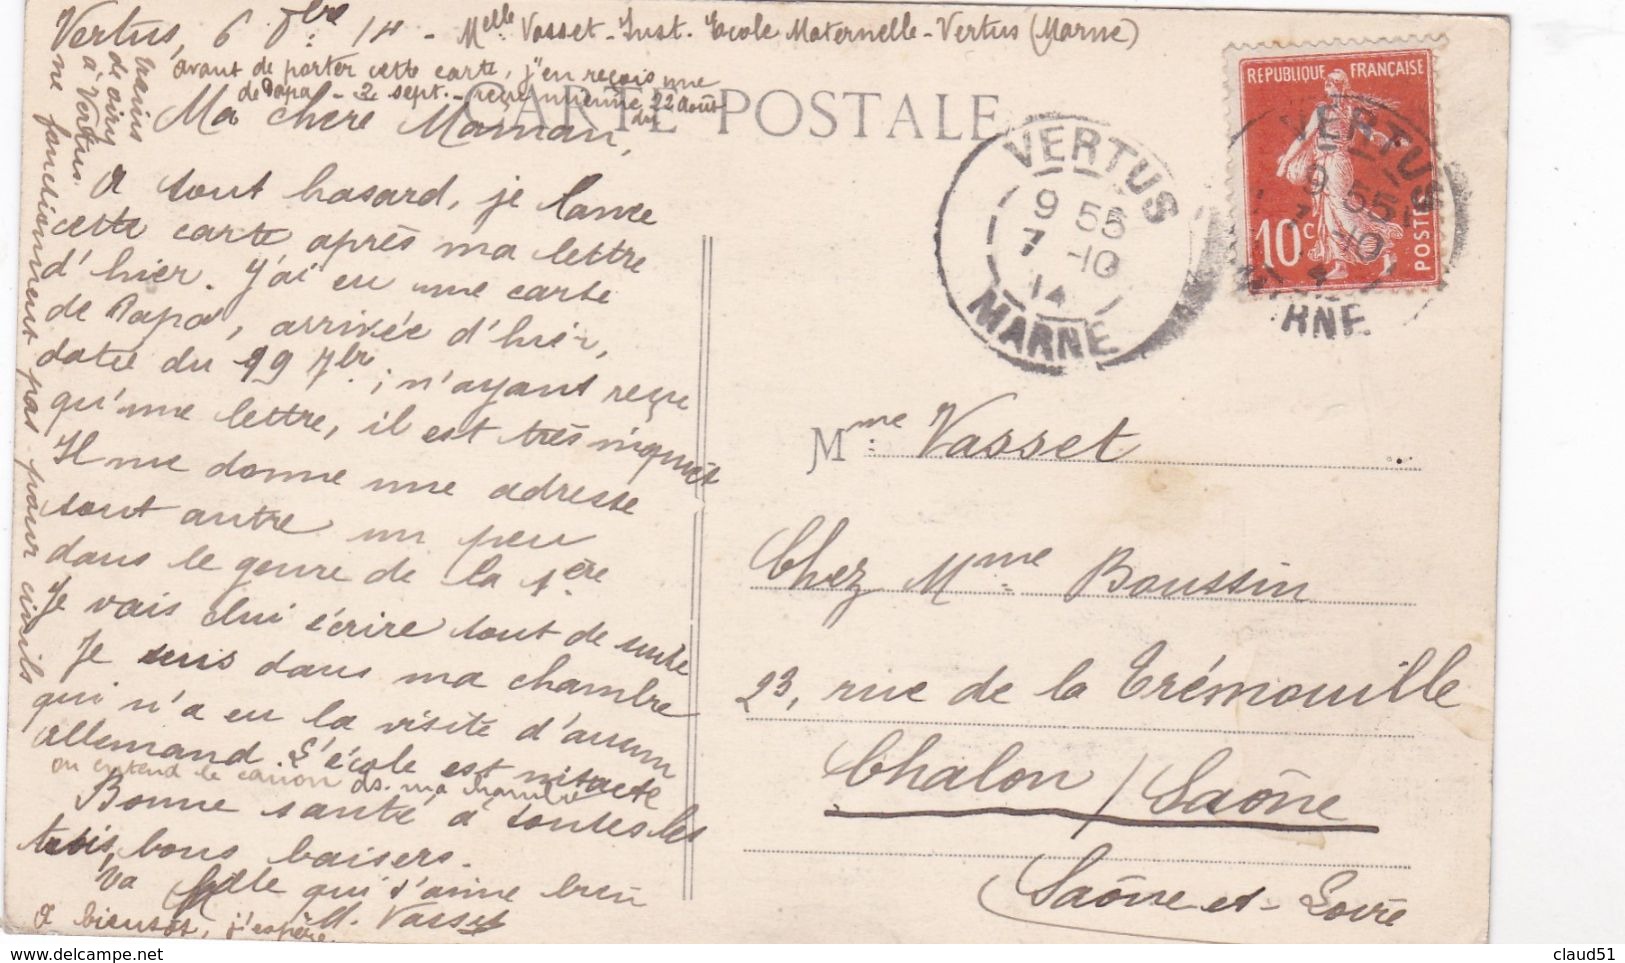 Vertus, 6 8bre 14 - Melle Vasset - Inst. Ecole Maternelle - Vertus (Marne)
avant de porter cette carte, j'en reçois une
de Papa - 2 sept. - reçu mienne du 22 août
CARTE POSTALE
Ma chère Maman,
A tout hasard, je lance
cette carte après ma lettre
d'hier. J'ai eu une carte
de Papa, arrivée d'hier,
datée du 29 7bre ; n'ayant reçu
qu'une lettre, il est très inquiet
Il me donne une adresse
tout autre un peu
dans le genre de la 1ère
Je vais lui écrire tout de suite
Je suis dans ma chambre
qui n'a eu la visite d'aucun
allemand. L'école est intacte
on entend le canon ds. ma chambre
Bonne santé à toutes les
trois, bons baisers.
Ta fille qui t'aime bien
M. Vasset
A bientôt, j'espère
trains
à Vertus.
ne fonctionnent pas pour civils
REPUBLIQUE FRANÇAISE
10c
POSTES
VERTUS
9 55
7 -10
14
MARNE
VERTUS
9 55
7 -10
14
MARNE
Mme Vasset
Chez Mme Boussin
23, rue de la Trémouille
Chalon / Saône
Saône-et-Loire
delcampe.net
claud51